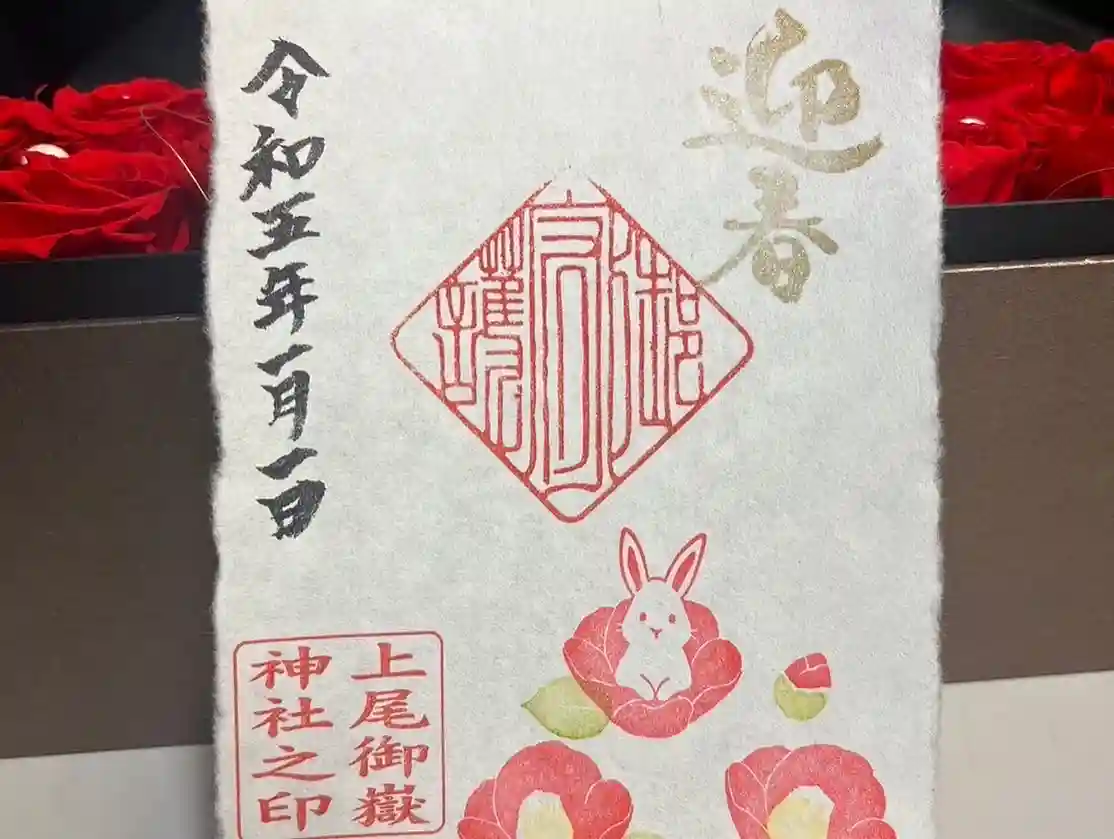 迎春
御守護
令和五年一月一日
上尾御嶽
神社之印